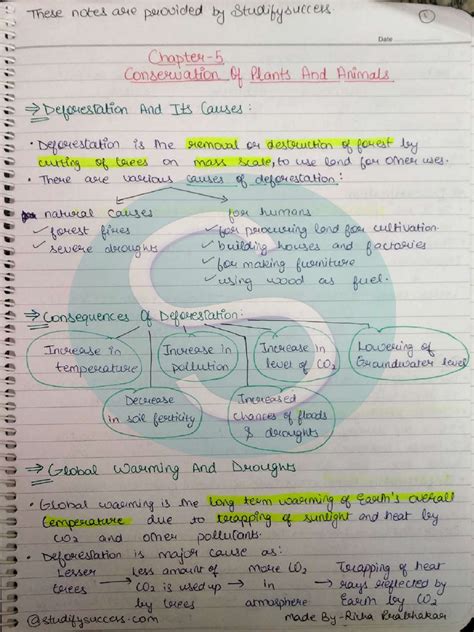 These notes are provided by Studifysuccess
1
Date
Chapter-5
Conservation Of Plants And Animals
⇒ Deforestation And Its Causes :
• Deforestation is the removal or destruction of forest by
cutting of trees on mass scale, to use land for other uses.
• There are various causes of deforestation :
natural causes
for humans
✓ forest fires
✓ for procuring land for cultivation
✓ severe droughts
✓ building houses and factories
✓ for making furniture
✓ using wood as fuel.
⇒ Consequences Of Deforestation:
Increase in
temperature
Increase in
pollution
Increase in
level of CO2
Lowering of
Groundwater level
Decrease
in soil fertility
Increased
chances of floods
& droughts
⇒ Global Warming And Droughts
• Global warming is the long term warming of Earth's overall
temperature due to trapping of sunlight and heat by
CO2 and other pollutants.
• Deforestation is major cause as:
Lesser trees → Less amount of CO2 is used up by trees → more CO2 in atmosphere → Trapping of heat rays reflected by Earth by CO2
@studifysuccess.com
made By - Richa Prabhakar